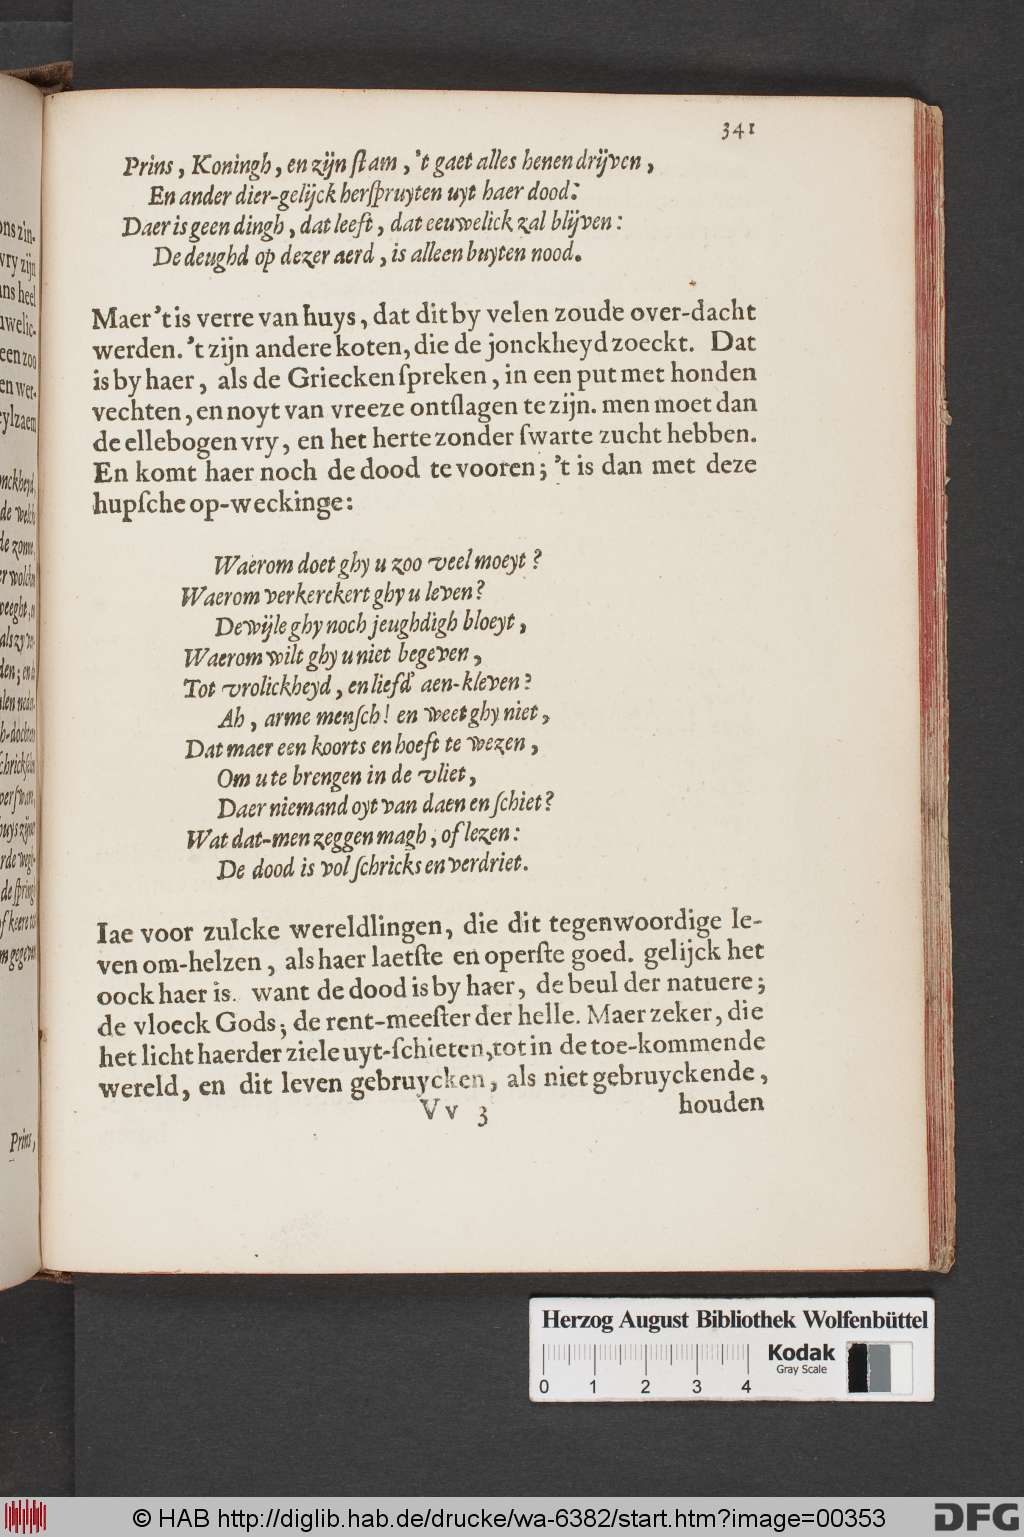 341
Prins, Koningh, en zijn ſtam, 't gaet alles henen drijven,
En ander dier-gelijck herſpruyten uyt haer dood:
Daer is geen dingh, dat leeft, dat eeuwelick zal blijven:
De deughd op dezer aerd, is alleen buyten nood.
Maer 't is verre van huys, dat dit by velen zoude over-dacht
werden. 't zijn andere koten, die de jonckheyd zoeckt. Dat
is by haer, als de Griecken ſpreken, in een put met honden
vechten, en noyt van vreeze ontſlagen te zijn. men moet dan
de ellebogen vry, en het herte zonder ſwarte zucht hebben.
En komt haer noch de dood te vooren; 't is dan met deze
hupſche op-weckinge:
Waerom doet ghy u zoo veel moeyt?
Waerom verkerckert ghy u leven?
Dewijle ghy noch jeughdigh bloeyt,
Waerom wilt ghy u niet begeven,
Tot vrolickheyd, en liefd' aen-kleven?
Ah, arme menſch! en weet ghy niet,
Dat maer een koorts en hoeft te wezen,
Om u te brengen in de vliet,
Daer niemand oyt van daen en ſchiet?
Wat dat-men zeggen magh, of lezen:
De dood is vol ſchricks en verdriet.
Iae voor zulcke wereldlingen, die dit tegenwoordige le-
ven om-helzen, als haer laetſte en operſte goed. gelijck het
oock haer is. want de dood is by haer, de beul der natuere;
de vloeck Gods; de rent-meeſter der helle. Maer zeker, die
het licht haerder ziele uyt-ſchieten, tot in de toe-kommende
wereld, en dit leven gebruycken, als niet gebruyckende,
Vv 3 houden
Prins,
Herzog August Bibliothek Wolfenbüttel
Kodak
Gray Scale
0 1 2 3 4
© HAB http://diglib.hab.de/drucke/wa-6382/start.htm?image=00353
DFG